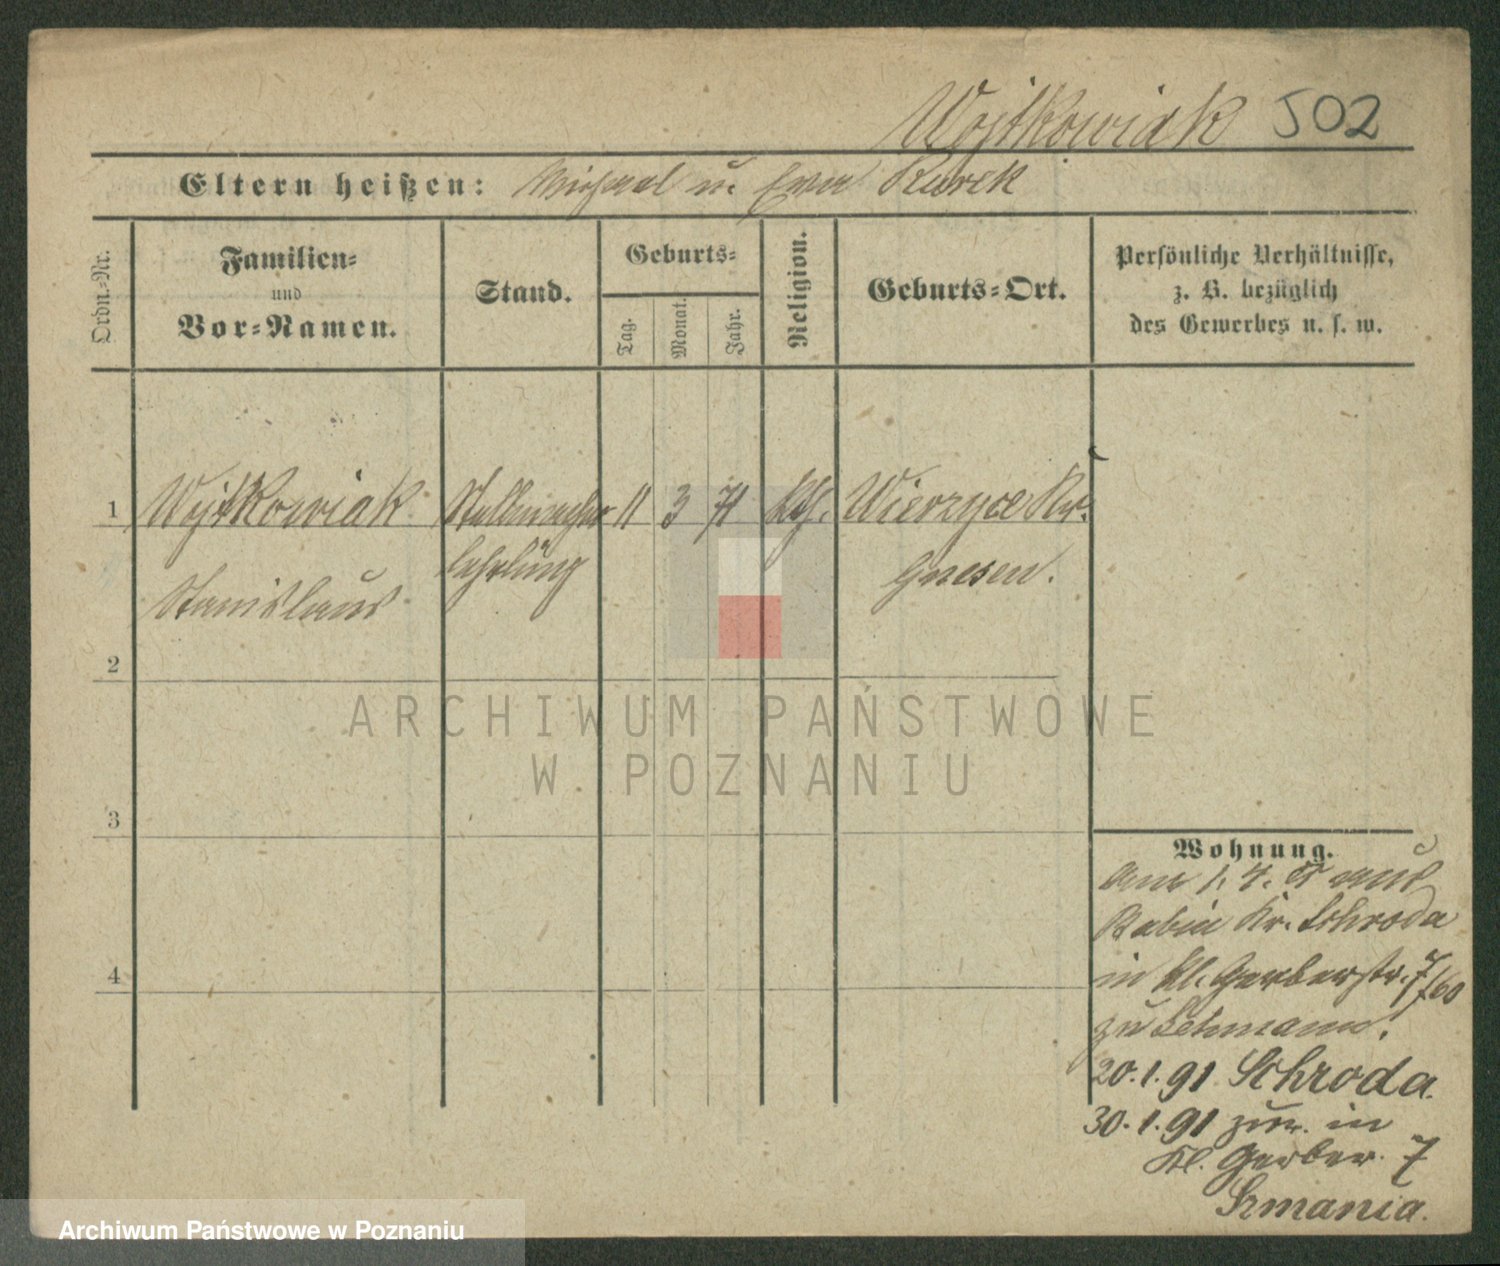 Wojtkowiak 502
Eltern heißen: Michael u. Eva Kurek
Ordn.-Nr.
Familien-
und
Vor-Namen.
Stand.
Geburts-
Tag.
Monat.
Jahr.
Religion.
Geburts-Ort.
Persönliche Verhältnisse,
z. B. bezüglich
des Gewerbes u. s. w.
1 Wojtkowiak Stellmacher 11 3 71 kth. Wierzyce Kr.
lehrling Gnesen.
Stanislaus
2
ARCHIWUM PAŃSTWOWE
W POZNANIU
3
4
Wohnung.
Am 1. 4. aus
Babin Kr. Schroda
in Kl. Gerberstr. 7/60
zu Lehmann.
20.1.91 Schroda.
30.1.91 zur. in
Kl. Gerber. 7
Szmania.
Archiwum Państwowe w Poznaniu